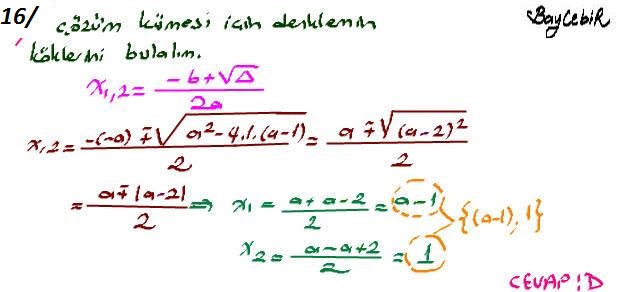 16/ çözüm kümesi için denklemin BayCebiR
köklerini bulalım.
x₁,₂ = (-b ∓ √Δ) / 2a
x₁,₂ = (-(-a) ∓ √(a² - 4.1.(a-1))) / 2 = (a ∓ √((a-2)²)) / 2
= (a ∓ |a-2|) / 2 ⇒ x₁ = (a + a - 2) / 2 = a-1
{(a-1), 1}
x₂ = (a - a + 2) / 2 = 1
CEVAP: D